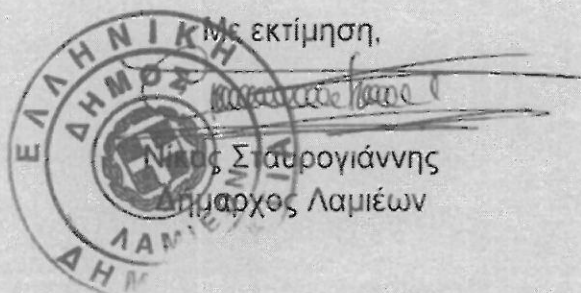 Με εκτίμηση,
Νίκος Σταυρογιάννης
Δήμαρχος Λαμιέων
ΕΛΛΗΝΙΚΗ
ΔΗΜΟΣ
ΛΑΜΙΕΩΝ